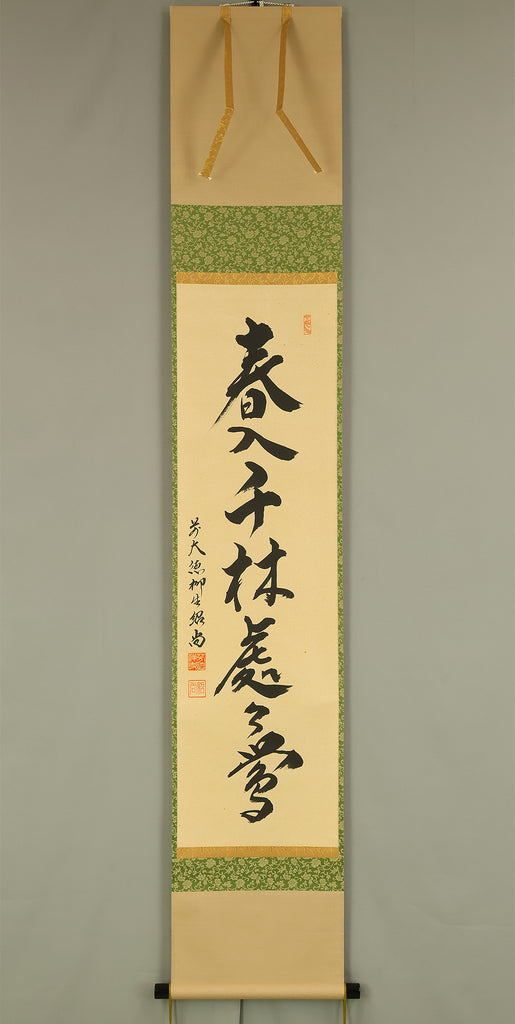 春入千林處々鶯
前大德柳生紹尚